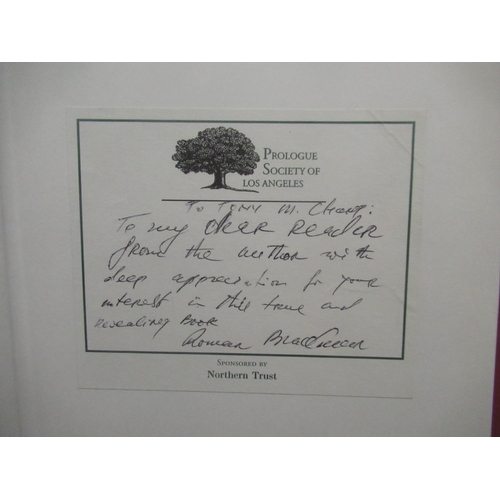 PROLOGUE
SOCIETY OF
LOS ANGELES
To TONY M. Champ:
To my dear Reader
from the author with
deep appreciation for your
interest in this true and
revealing Book
Roman Brackman
SPONSORED BY
Northern Trust